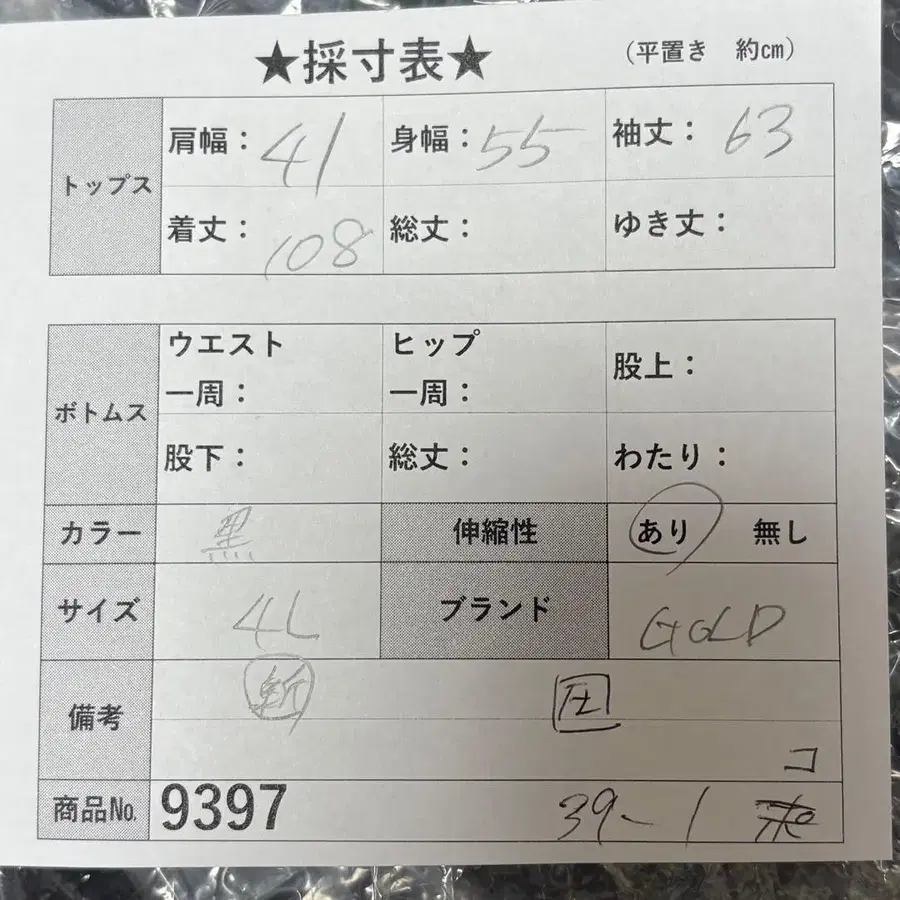 ★採寸表★ （平置き 約㎝）
トップス 肩幅：41 身幅：55 袖丈：63
着丈：108 総丈： ゆき丈：
ボトムス ウエスト一周： ヒップ一周： 股上：
股下： 総丈： わたり：
カラー 黒 伸縮性 あり 無し
サイズ 4L ブランド GOLD
備考 新 圧
コ
商品№ 9397 39-1